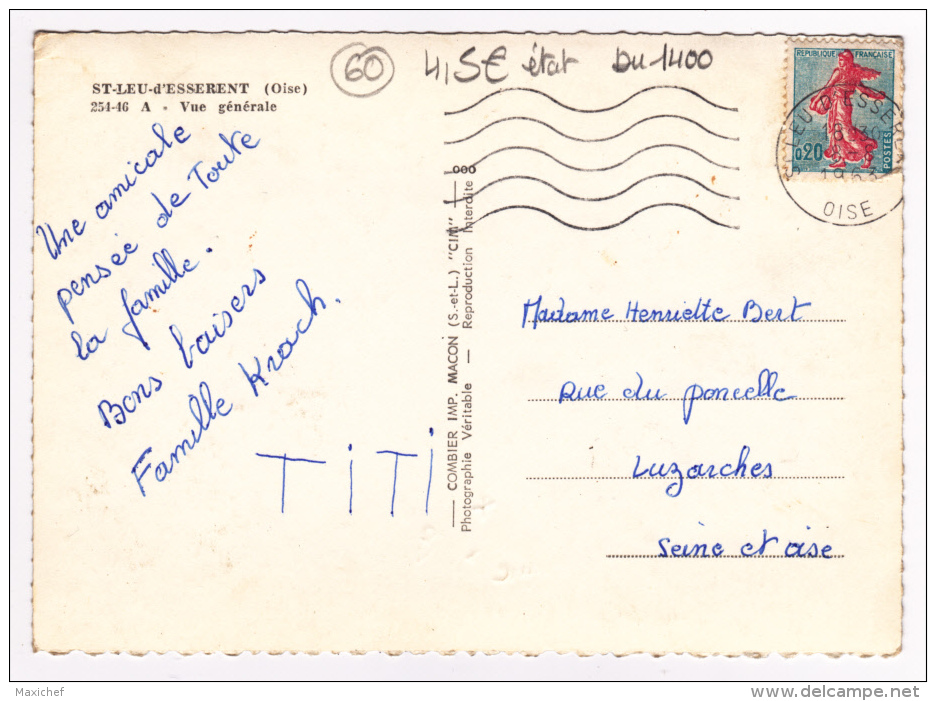 ST-LEU-d'ESSERENT (Oise)
254-46 A - Vue générale
60
4,5€ état Du 1400
REPUBLIQUE FRANÇAISE
0,20
POSTES
ST LEU D'ESSERENT
18 30
1963
OISE
Une amicale
pensée de Toute
la famille.
Bons baisers
Famille Krach.
TiTi
COMBIER IMP. MACON (S.-et-L.) "CIM"
Photographie Véritable — Reproduction Interdite
ooo
Madame Henriette Bert
Rue du poncelle
Luzarches
Seine et oise
Maxichef
delcampe.net